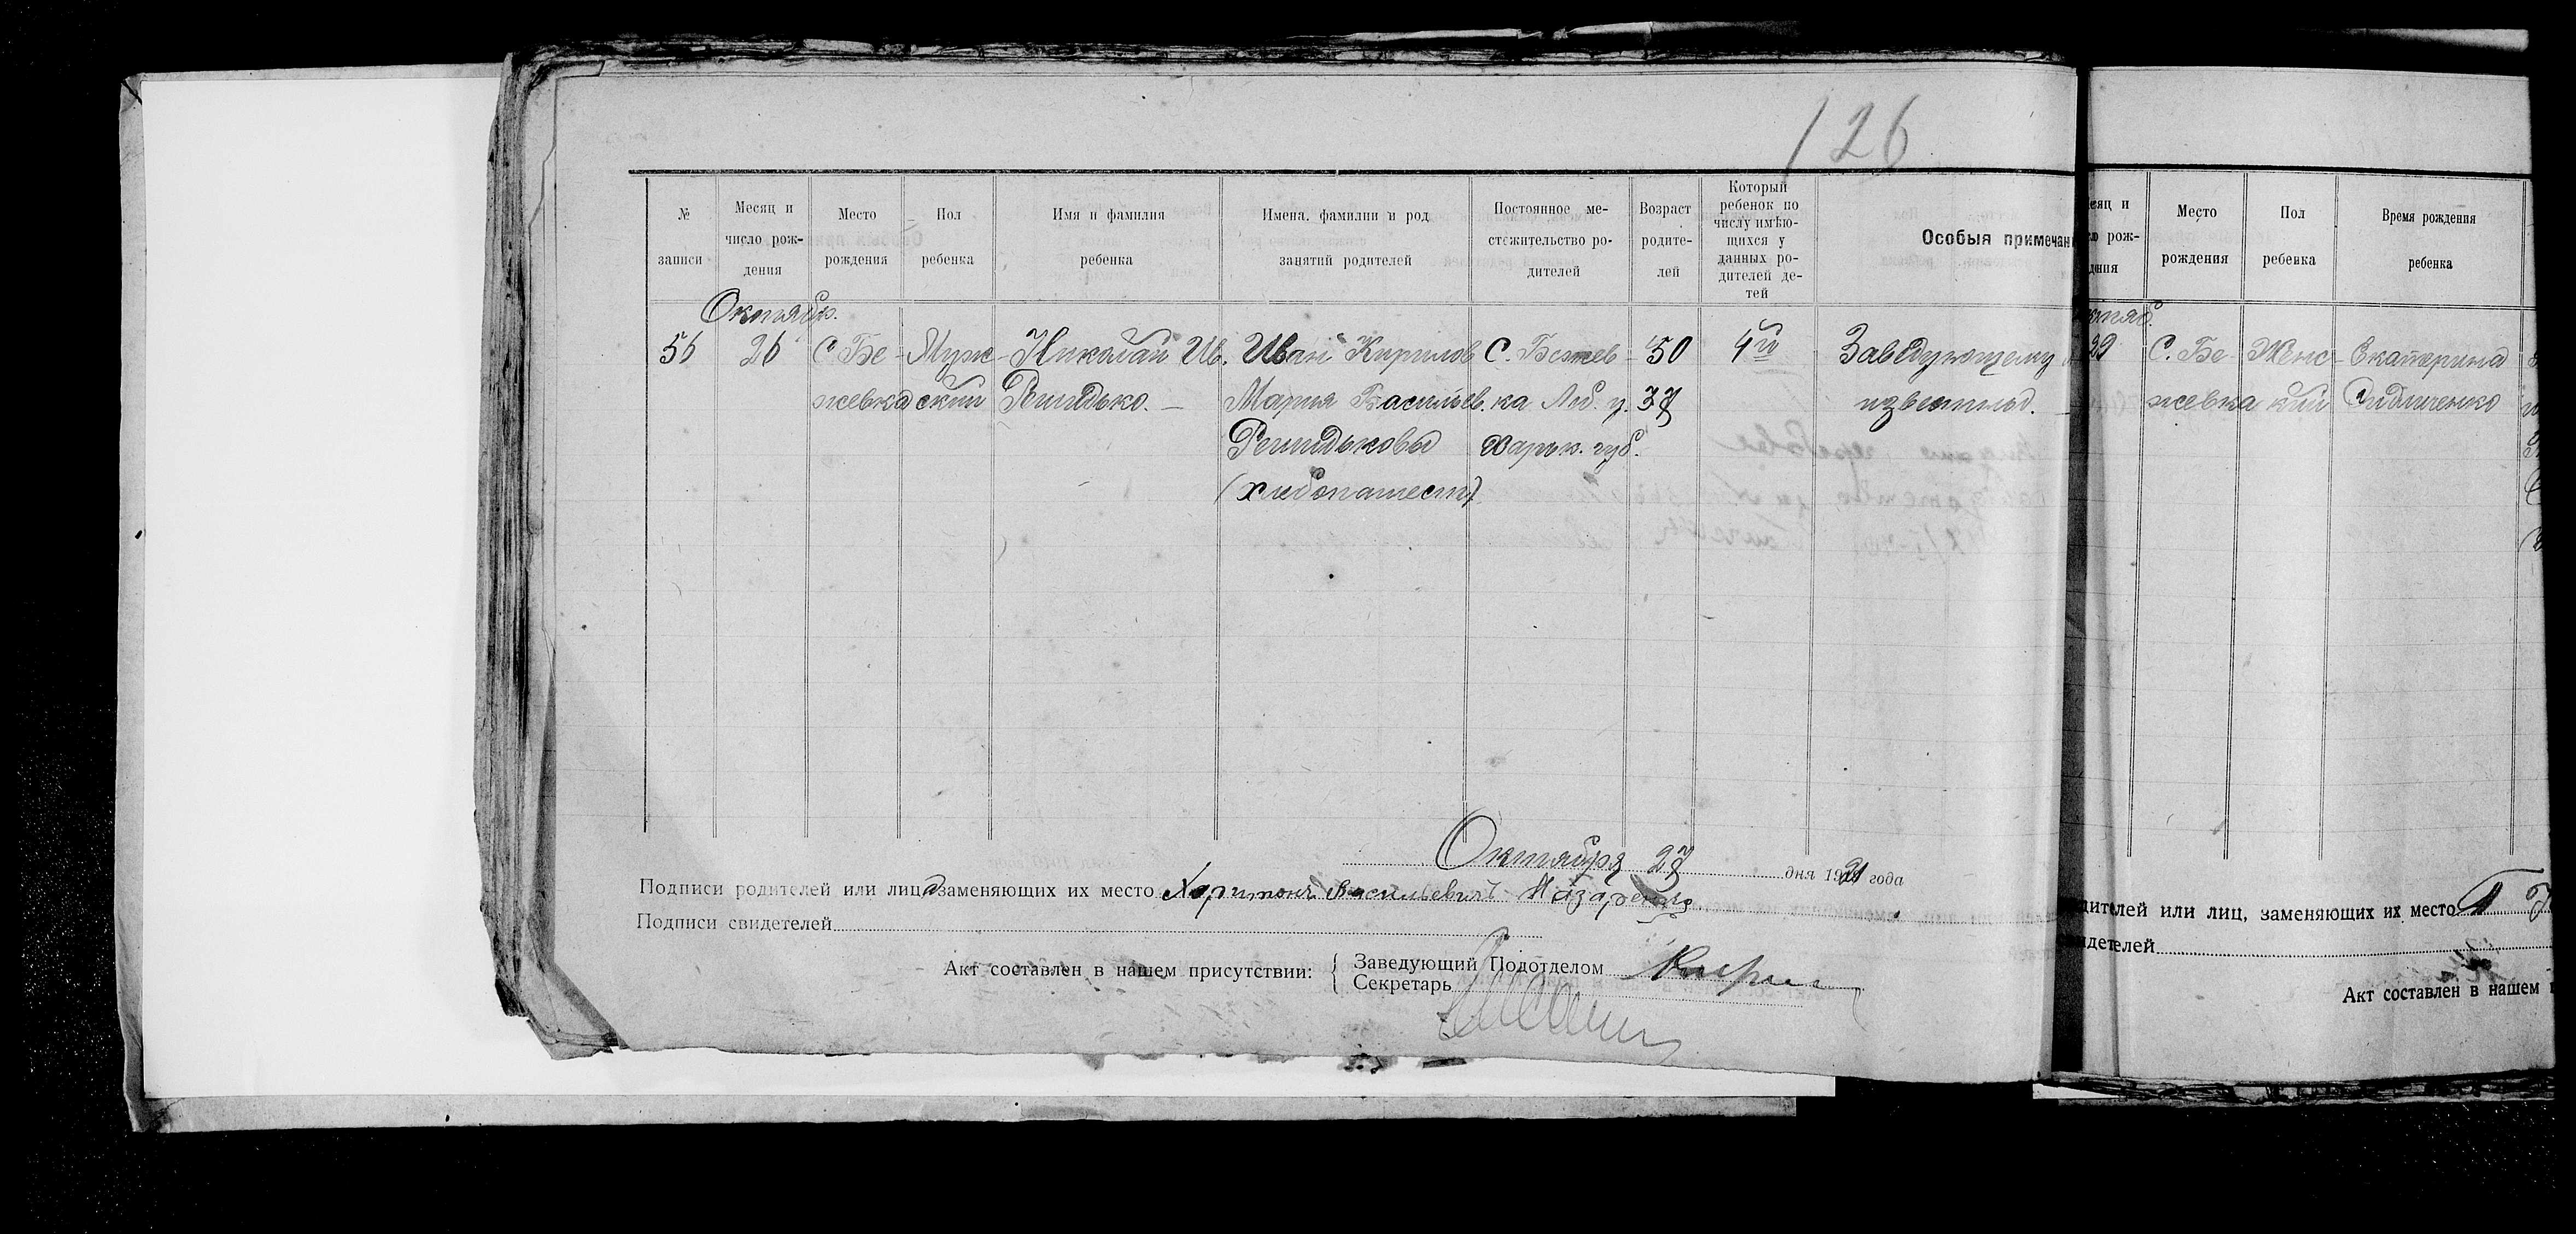 126
№ записи
Месяц и число рождения
Место рождения
Пол ребенка
Имя и фамилия ребенка
Имена, фамилии и род занятий родителей
Постоянное местожительство родителей
Возраст родителей
Который ребенок по числу имѣющихся у данных родителей детей
Особыя примечан
Октябр.
56 26 С. Бе- Муж- Николай Ив. Иван Кирилов С. Бежев- 50 4й Заведующему
жевка ский Мария Васильев. ка Леб. у. 37 известный.
Харьк. губ.
(хлебопашест)
Октября 27 дня 1921 года
Подписи родителей или лиц, заменяющих их место Харитонъ Васильевичъ Назаренко
Подписи свидетелей
Акт составлен в нашем присутствии:
Заведующий Подотделом
Секретарь
есяц и
ло рож-
дения
Место рождения
Пол ребенка
Время рождения ребенка
29 С. Бе- Женс- Екатерина
жевка кий
дителей или лиц, заменяющих их место
идетелей
Акт составлен в нашем